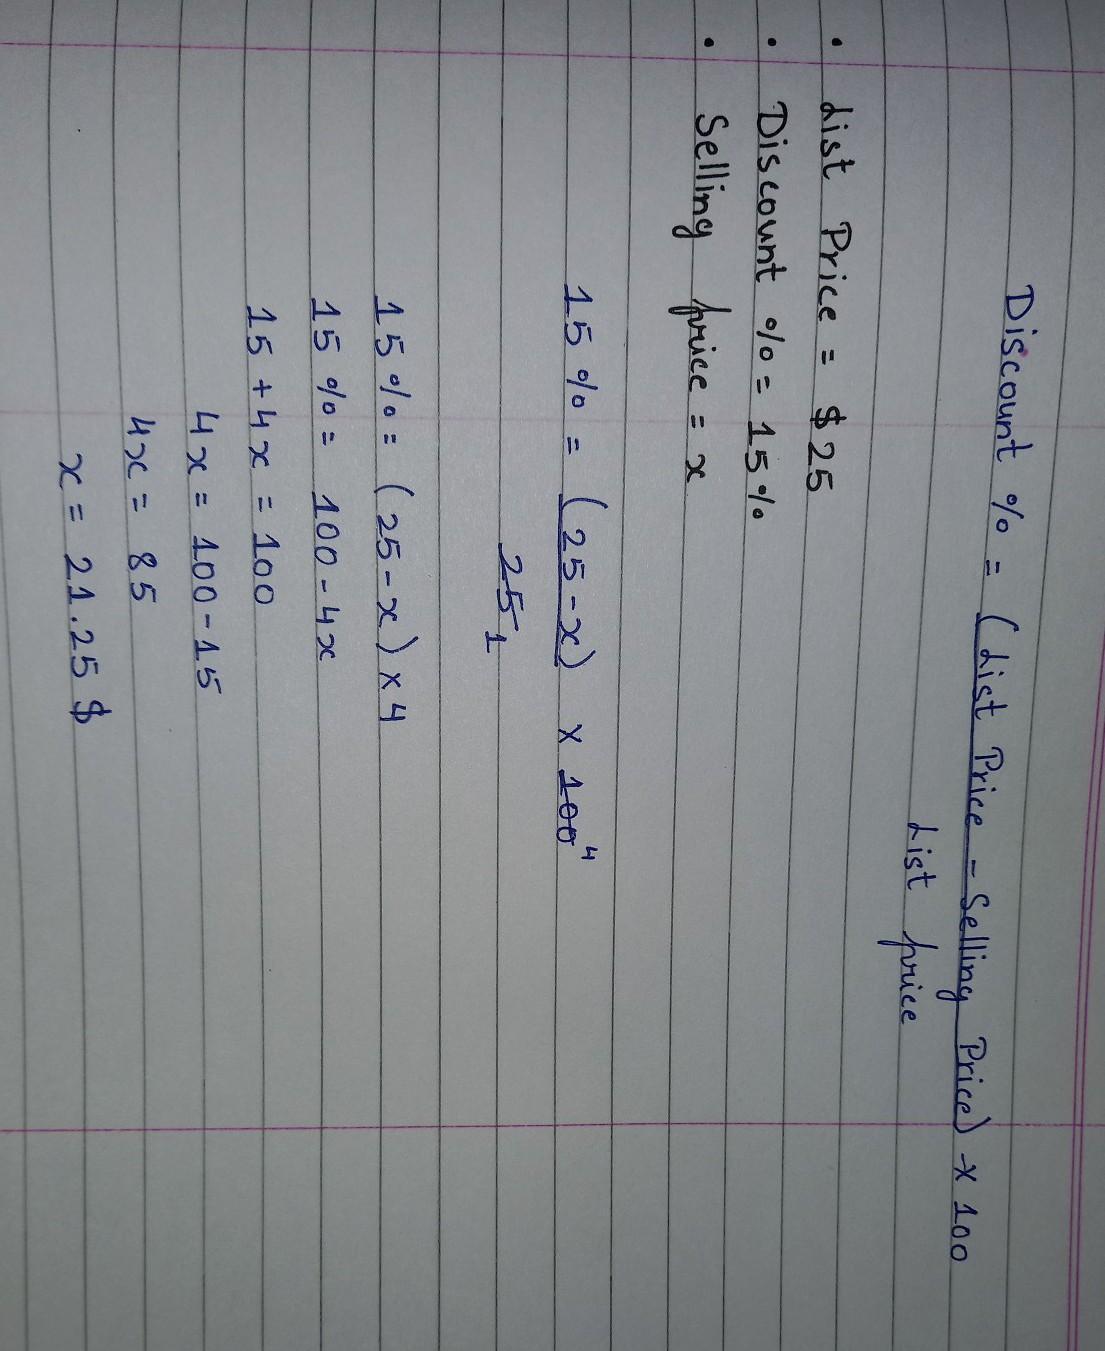 Discount % = (List Price - Selling Price) × 100
List price
• List Price = $25
• Discount % = 15%
• Selling price = x
15% = (25-x) × 100 4
25 1
15% = (25-x) × 4
15% = 100-4x
15+4x = 100
4x = 100-15
4x = 85
x = 21.25 $